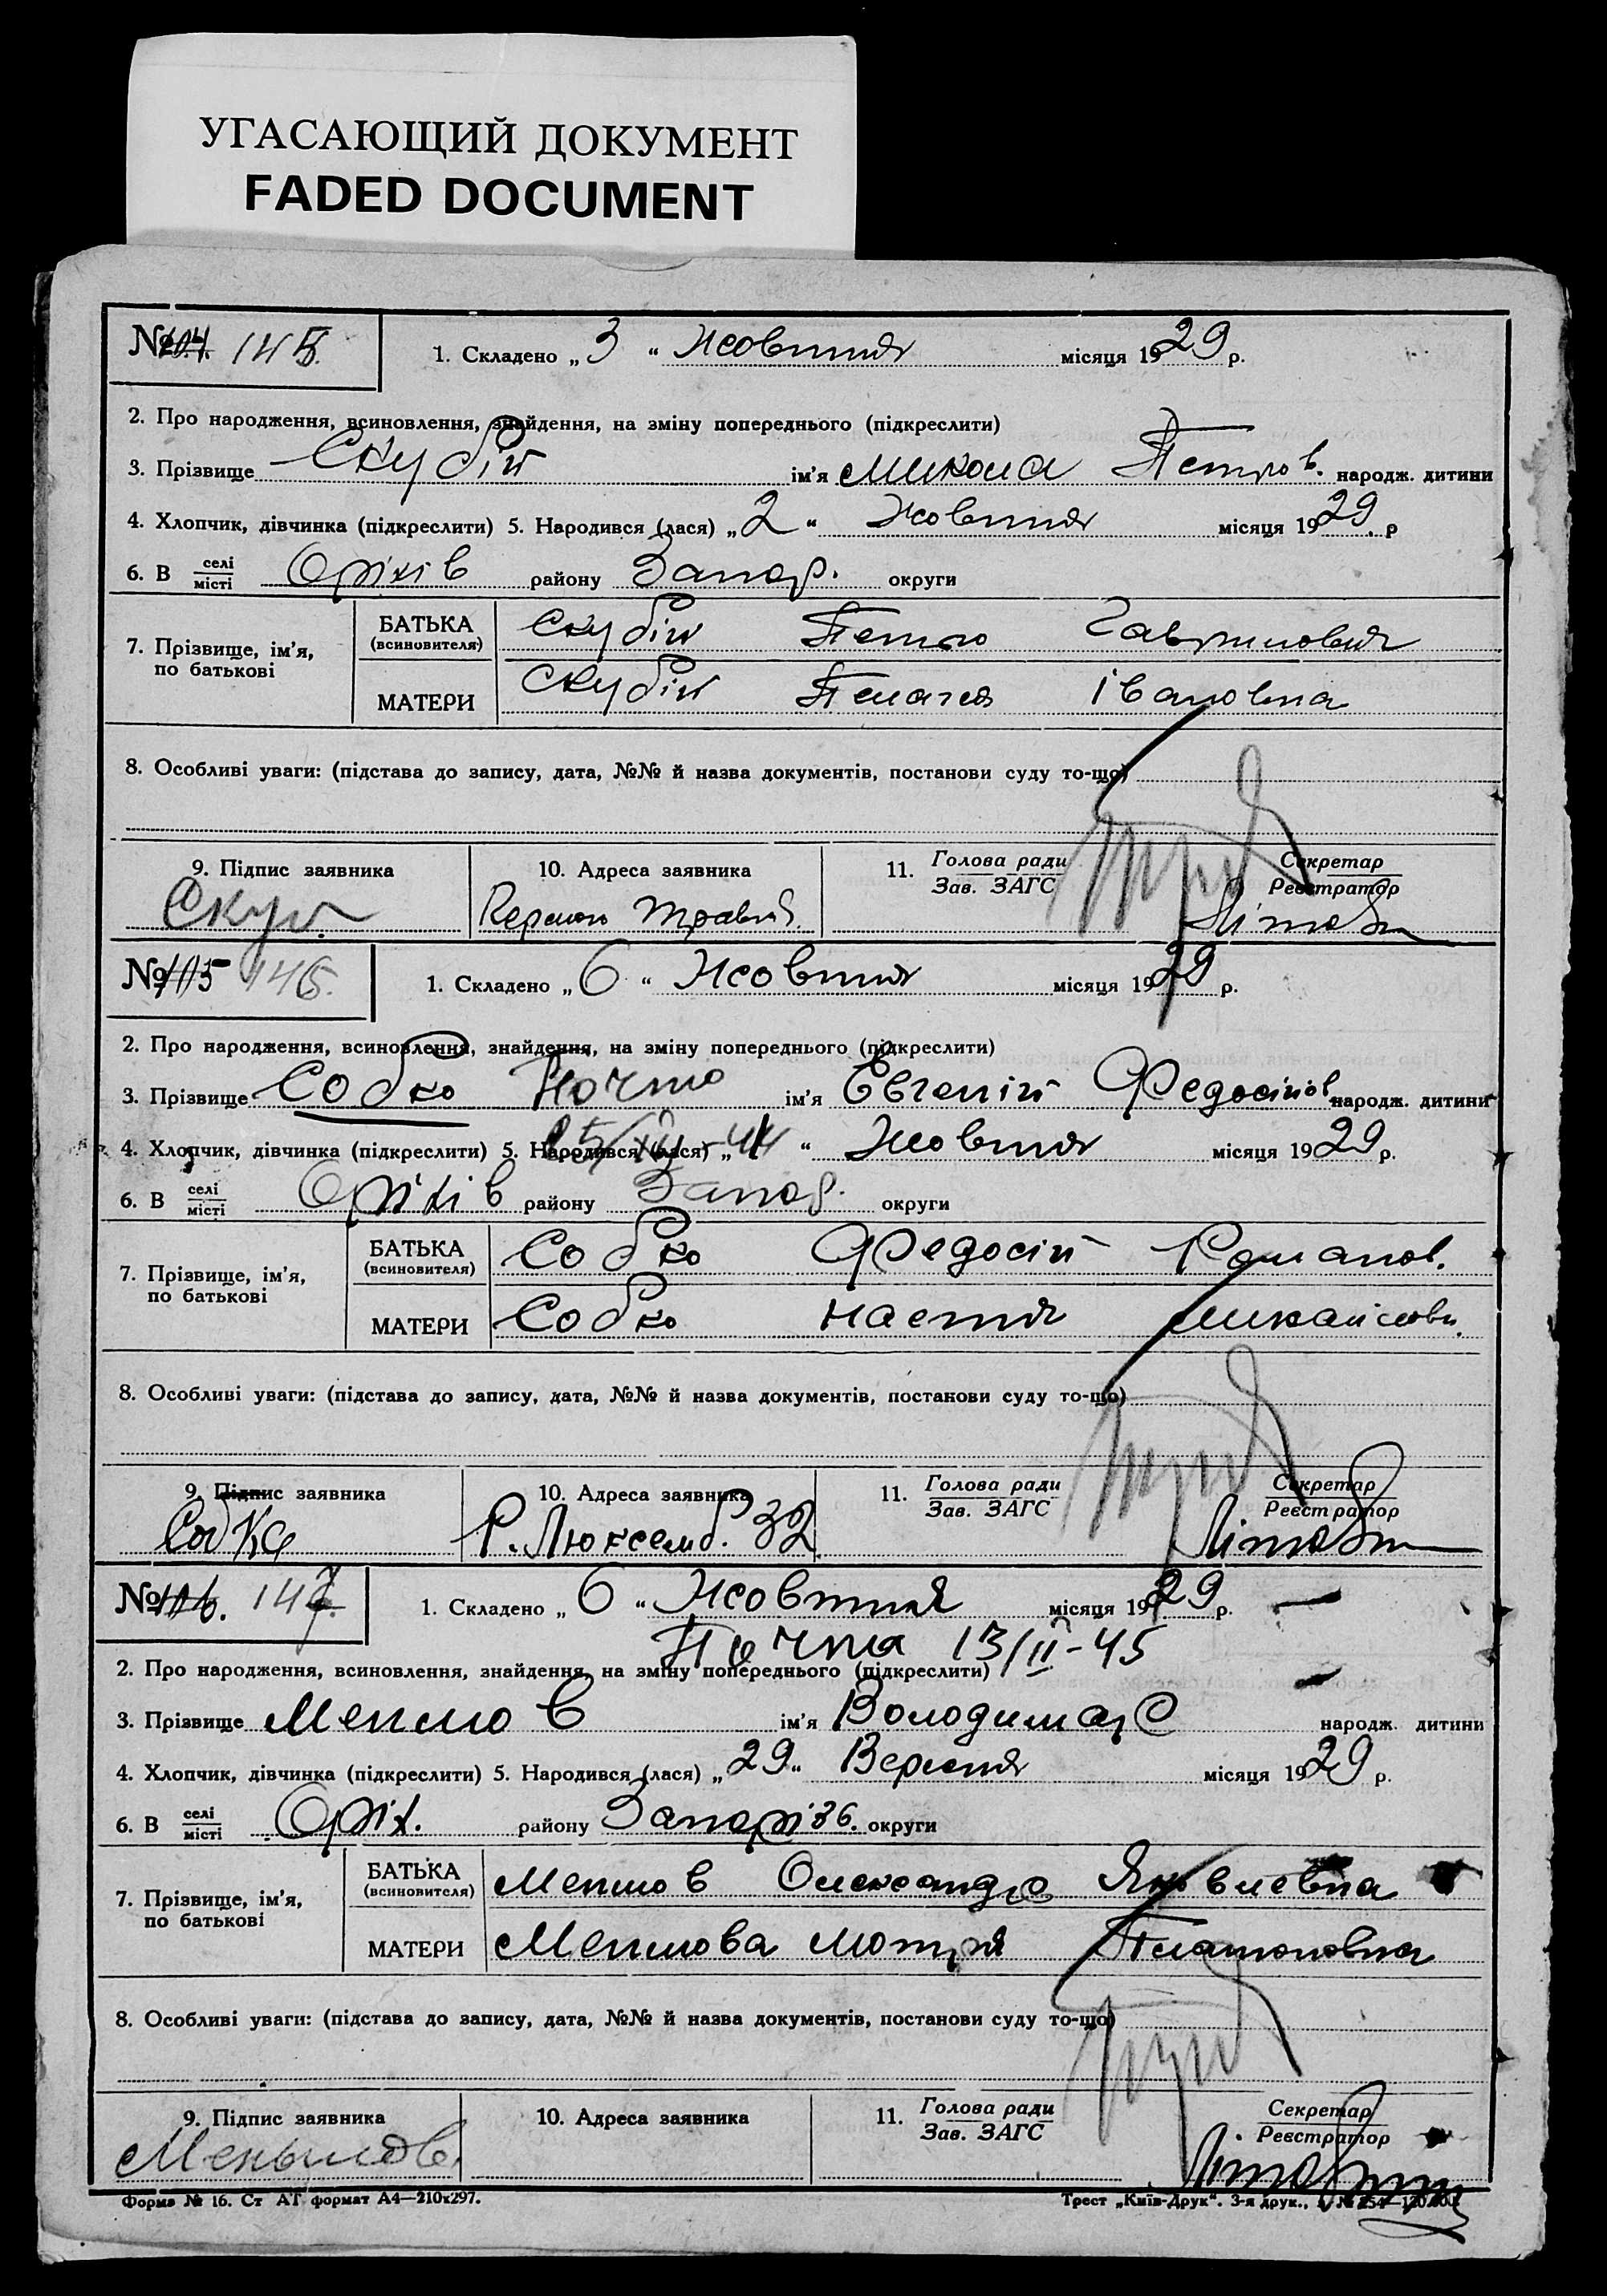 УГАСАЮЩИЙ ДОКУМЕНТ
FADED DOCUMENT
№ 104. 145. 1. Складено „ 3 “ Жовтня місяця 1929 р.
2. Про народження, всиновлення, знайдення, на зміну попереднього (підкреслити)
3. Прізвище Скубій ім’я Микола Петров. народж. дитини
4. Хлопчик, дівчинка (підкреслити) 5. Народився (лася) „ 2 “ Жовтня місяця 1929 . р
6. В селі місті Оріхів району Запор. округи
7. Прізвище, ім’я, по батькові БАТЬКА (всиновителя) Скубій Петро Гаврилович
МАТЕРИ Скубій Пелагея Івановна
8. Особливі уваги: (підстава до запису, дата, №№ й назва документів, постанови суду то-що)
9. Підпис заявника 10. Адреса заявника 11. Голова ради Зав. ЗАГС Секретар Реєстратор
№ 105 146. 1. Складено „ 6 “ Жовтня місяця 1929 р.
2. Про народження, всиновлення, знайдення, на зміну попереднього (підкреслити)
3. Прізвище Собко ім’я Євгеній Федосійов народж. дитини
4. Хлопчик, дівчинка (підкреслити) 5. Народився (лася) „ “ Жовтня місяця 1929 р.
6. В селі місті Оріхів району Запор. округи
7. Прізвище, ім’я, по батькові БАТЬКА (всиновителя) Собко Федосій Романов.
МАТЕРИ Собко Настя Михайловн.
8. Особливі уваги: (підстава до запису, дата, №№ й назва документів, постанови суду то-що)
9. Підпис заявника 10. Адреса заявника 11. Голова ради Зав. ЗАГС Секретар Реєстратор
Собко Р. Люксемб. 32
№ 106. 147. 1. Складено „ 6 “ Жовтня місяця 1929 р.
Почта 13/II-45
2. Про народження, всиновлення, знайдення, на зміну попереднього (підкреслити)
3. Прізвище Меншов ім’я Володимар народж. дитини
4. Хлопчик, дівчинка (підкреслити) 5. Народився (лася) „ 29 “ Вересня місяця 1929 р.
6. В селі місті Оріх. району Запоріз. округи
7. Прізвище, ім’я, по батькові БАТЬКА (всиновителя) Меншов Олександр Яковлевна
МАТЕРИ Меншова Мотря Платоновна
8. Особливі уваги: (підстава до запису, дата, №№ й назва документів, постанови суду то-що)
9. Підпис заявника 10. Адреса заявника 11. Голова ради Зав. ЗАГС Секретар Реєстратор
Меньшов.
Форма № 16. Ст АТ формат А4—210х297. Трест „Київ-Друк“. 3-я друк.,